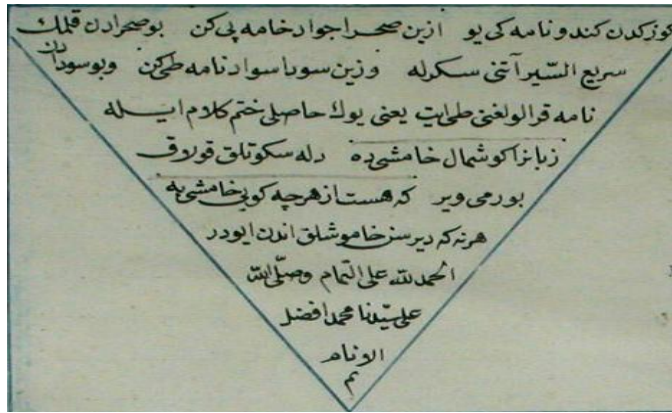 كوزكدن كند و نامه كى يو ازين صحرا جواد خامه پى كن بو صحرادن قلمك
سريع السير آتنى سكرله وزين سودا سواد نامه طى كن وبو سودادن
نامه قرالولغنى طى ايت يعنى يوك حاصلى ختم كلام ايله
زبانرا كوشمال خامشى ده دله سكوتلق قولاق
بورمى وير كه هست از هرچه كويى خامشى به
هرنه كه ديرسن خاموشلق اندن ايودر
الحمد لله على التمام وصلّى الله
على سيّدنا محمد افضل
الانام
تم